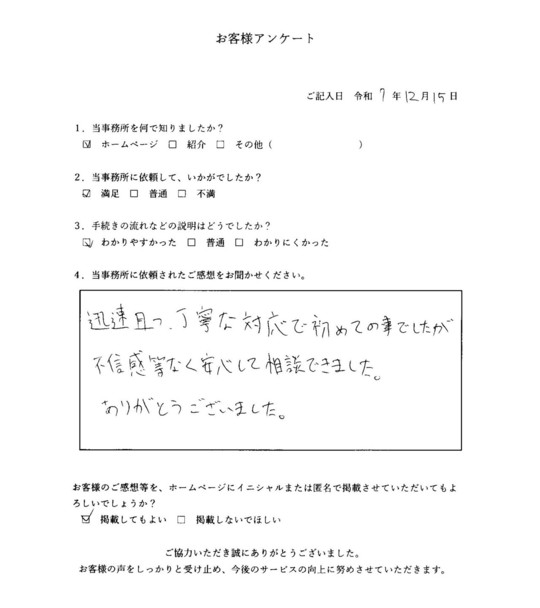 お客様アンケート
ご記入日　令和　7　年　12　月　15　日
1．当事務所を何で知りましたか？
☑　ホームページ　□　紹介　□　その他（　　　　　　　　）
2．当事務所に依頼して、いかがでしたか？
☑　満足　□　普通　□　不満
3．手続きの流れなどの説明はどうでしたか？
☑　わかりやすかった　□　普通　□　わかりにくかった
4．当事務所に依頼されたご感想をお聞かせください。
迅速且つ、丁寧な対応で初めての事でしたが
不信感等なく安心して相談できました。
ありがとうございました。
お客様のご感想等を、ホームページにイニシャルまたは匿名で掲載させていただいてもよ
ろしいでしょうか？
☑　掲載してもよい　□　掲載しないでほしい
ご協力いただき誠にありがとうございました。
お客様の声をしっかりと受け止め、今後のサービスの向上に努めさせていただきます。